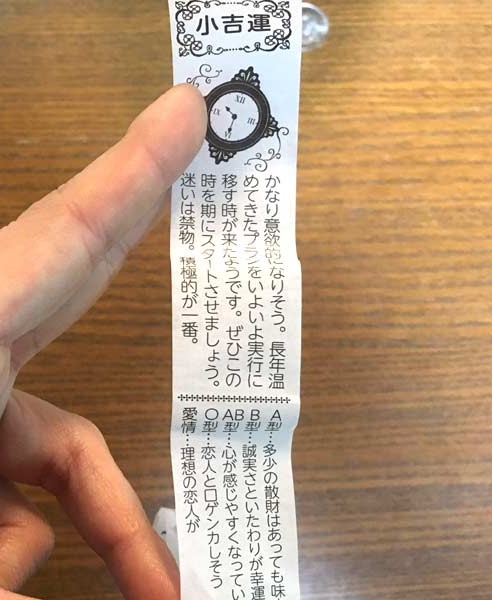 小吉運
XII
III
VI
IX
かなり意欲的になりそう。長年温
めてきたプランをいよいよ実行に
移す時が来たようです。ぜひこの
時を期にスタートさせましょう。
迷いは禁物。積極的が一番。
A型…多少の散財はあっても味
B型…誠実さといたわりが幸運
AB型…心が感じやすくなってい
O型…恋人と口ゲンカしそう
愛情…理想の恋人が